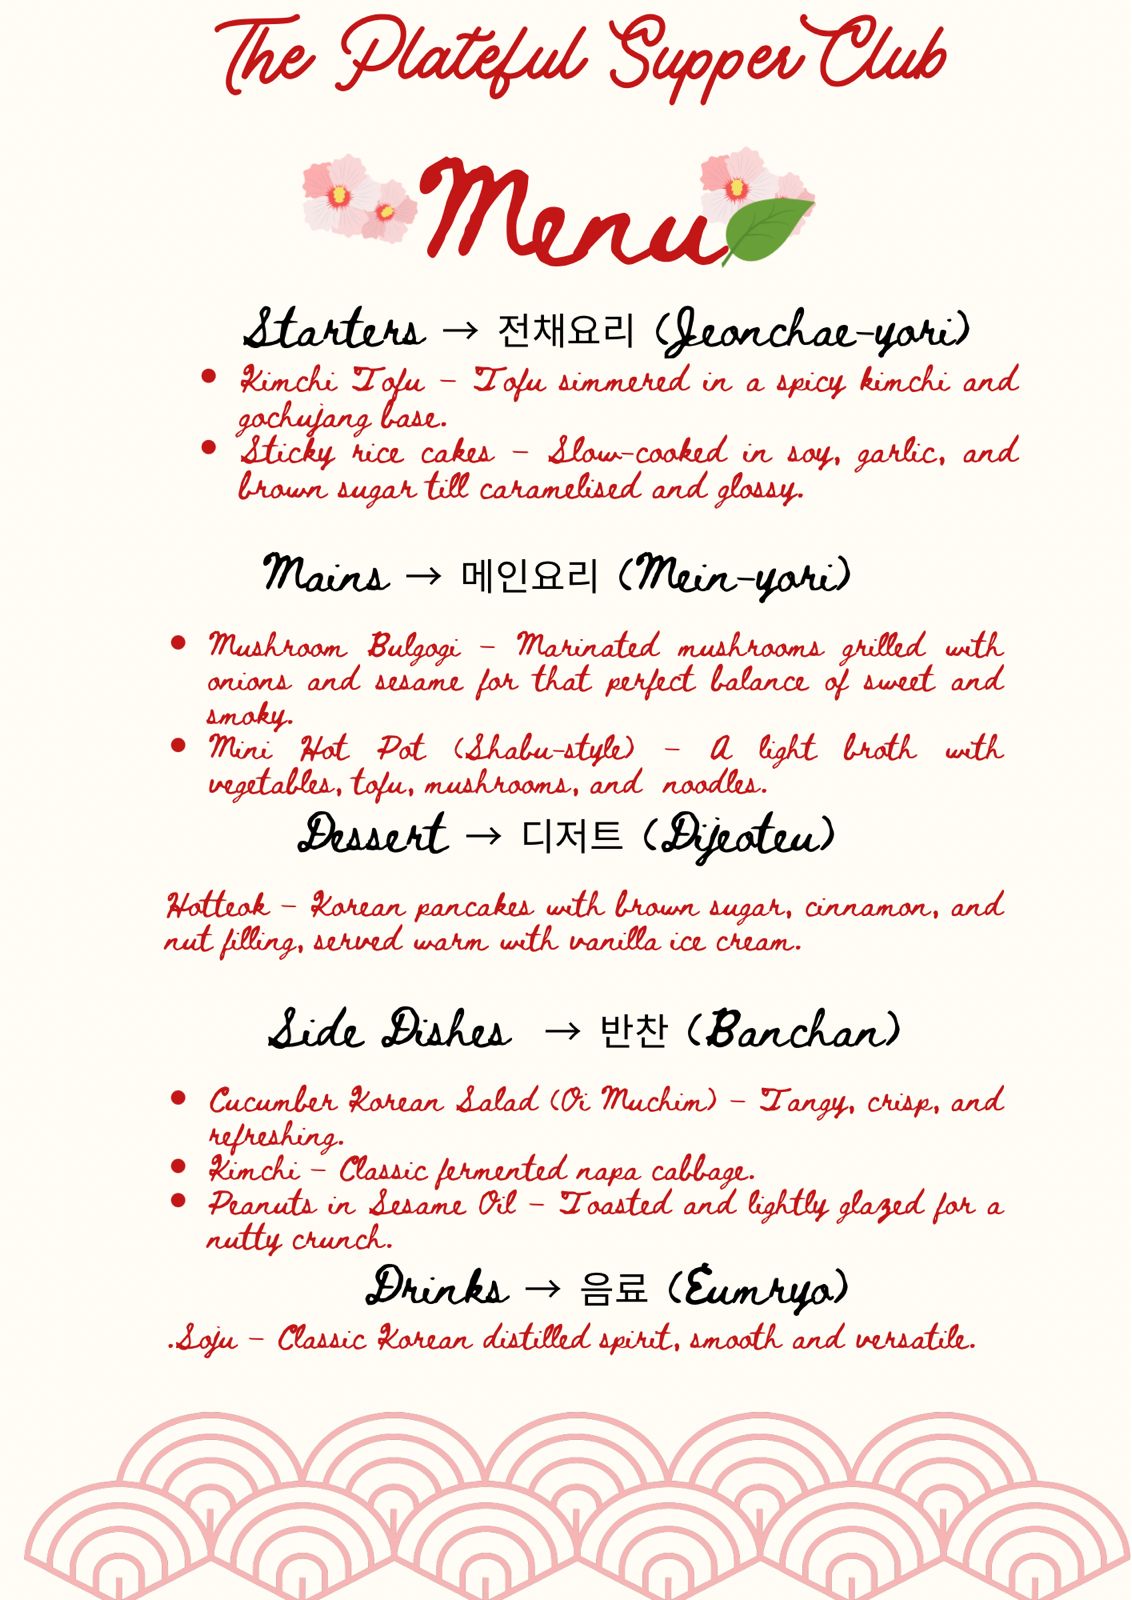 The Plateful Supper Club
Menu
Starters → 전채요리 (Jeonchae-yori)
• Kimchi Tofu – Tofu simmered in a spicy kimchi and
gochujang base.
• Sticky rice cakes – Slow-cooked in soy, garlic, and
brown sugar till caramelised and glossy.
Mains → 메인요리 (Mein-yori)
• Mushroom Bulgogi – Marinated mushrooms grilled with
onions and sesame for that perfect balance of sweet and
smoky.
• Mini Hot Pot (Shabu-style) – A light broth with
vegetables, tofu, mushrooms, and noodles.
Dessert → 디저트 (Dijeoteu)
Hotteok – Korean pancakes with brown sugar, cinnamon, and
nut filling, served warm with vanilla ice cream.
Side Dishes → 반찬 (Banchan)
• Cucumber Korean Salad (Oi Muchim) – Tangy, crisp, and
refreshing.
• Kimchi – Classic fermented napa cabbage.
• Peanuts in Sesame Oil – Toasted and lightly glazed for a
nutty crunch.
Drinks → 음료 (Eumryo)
.Soju – Classic Korean distilled spirit, smooth and versatile.